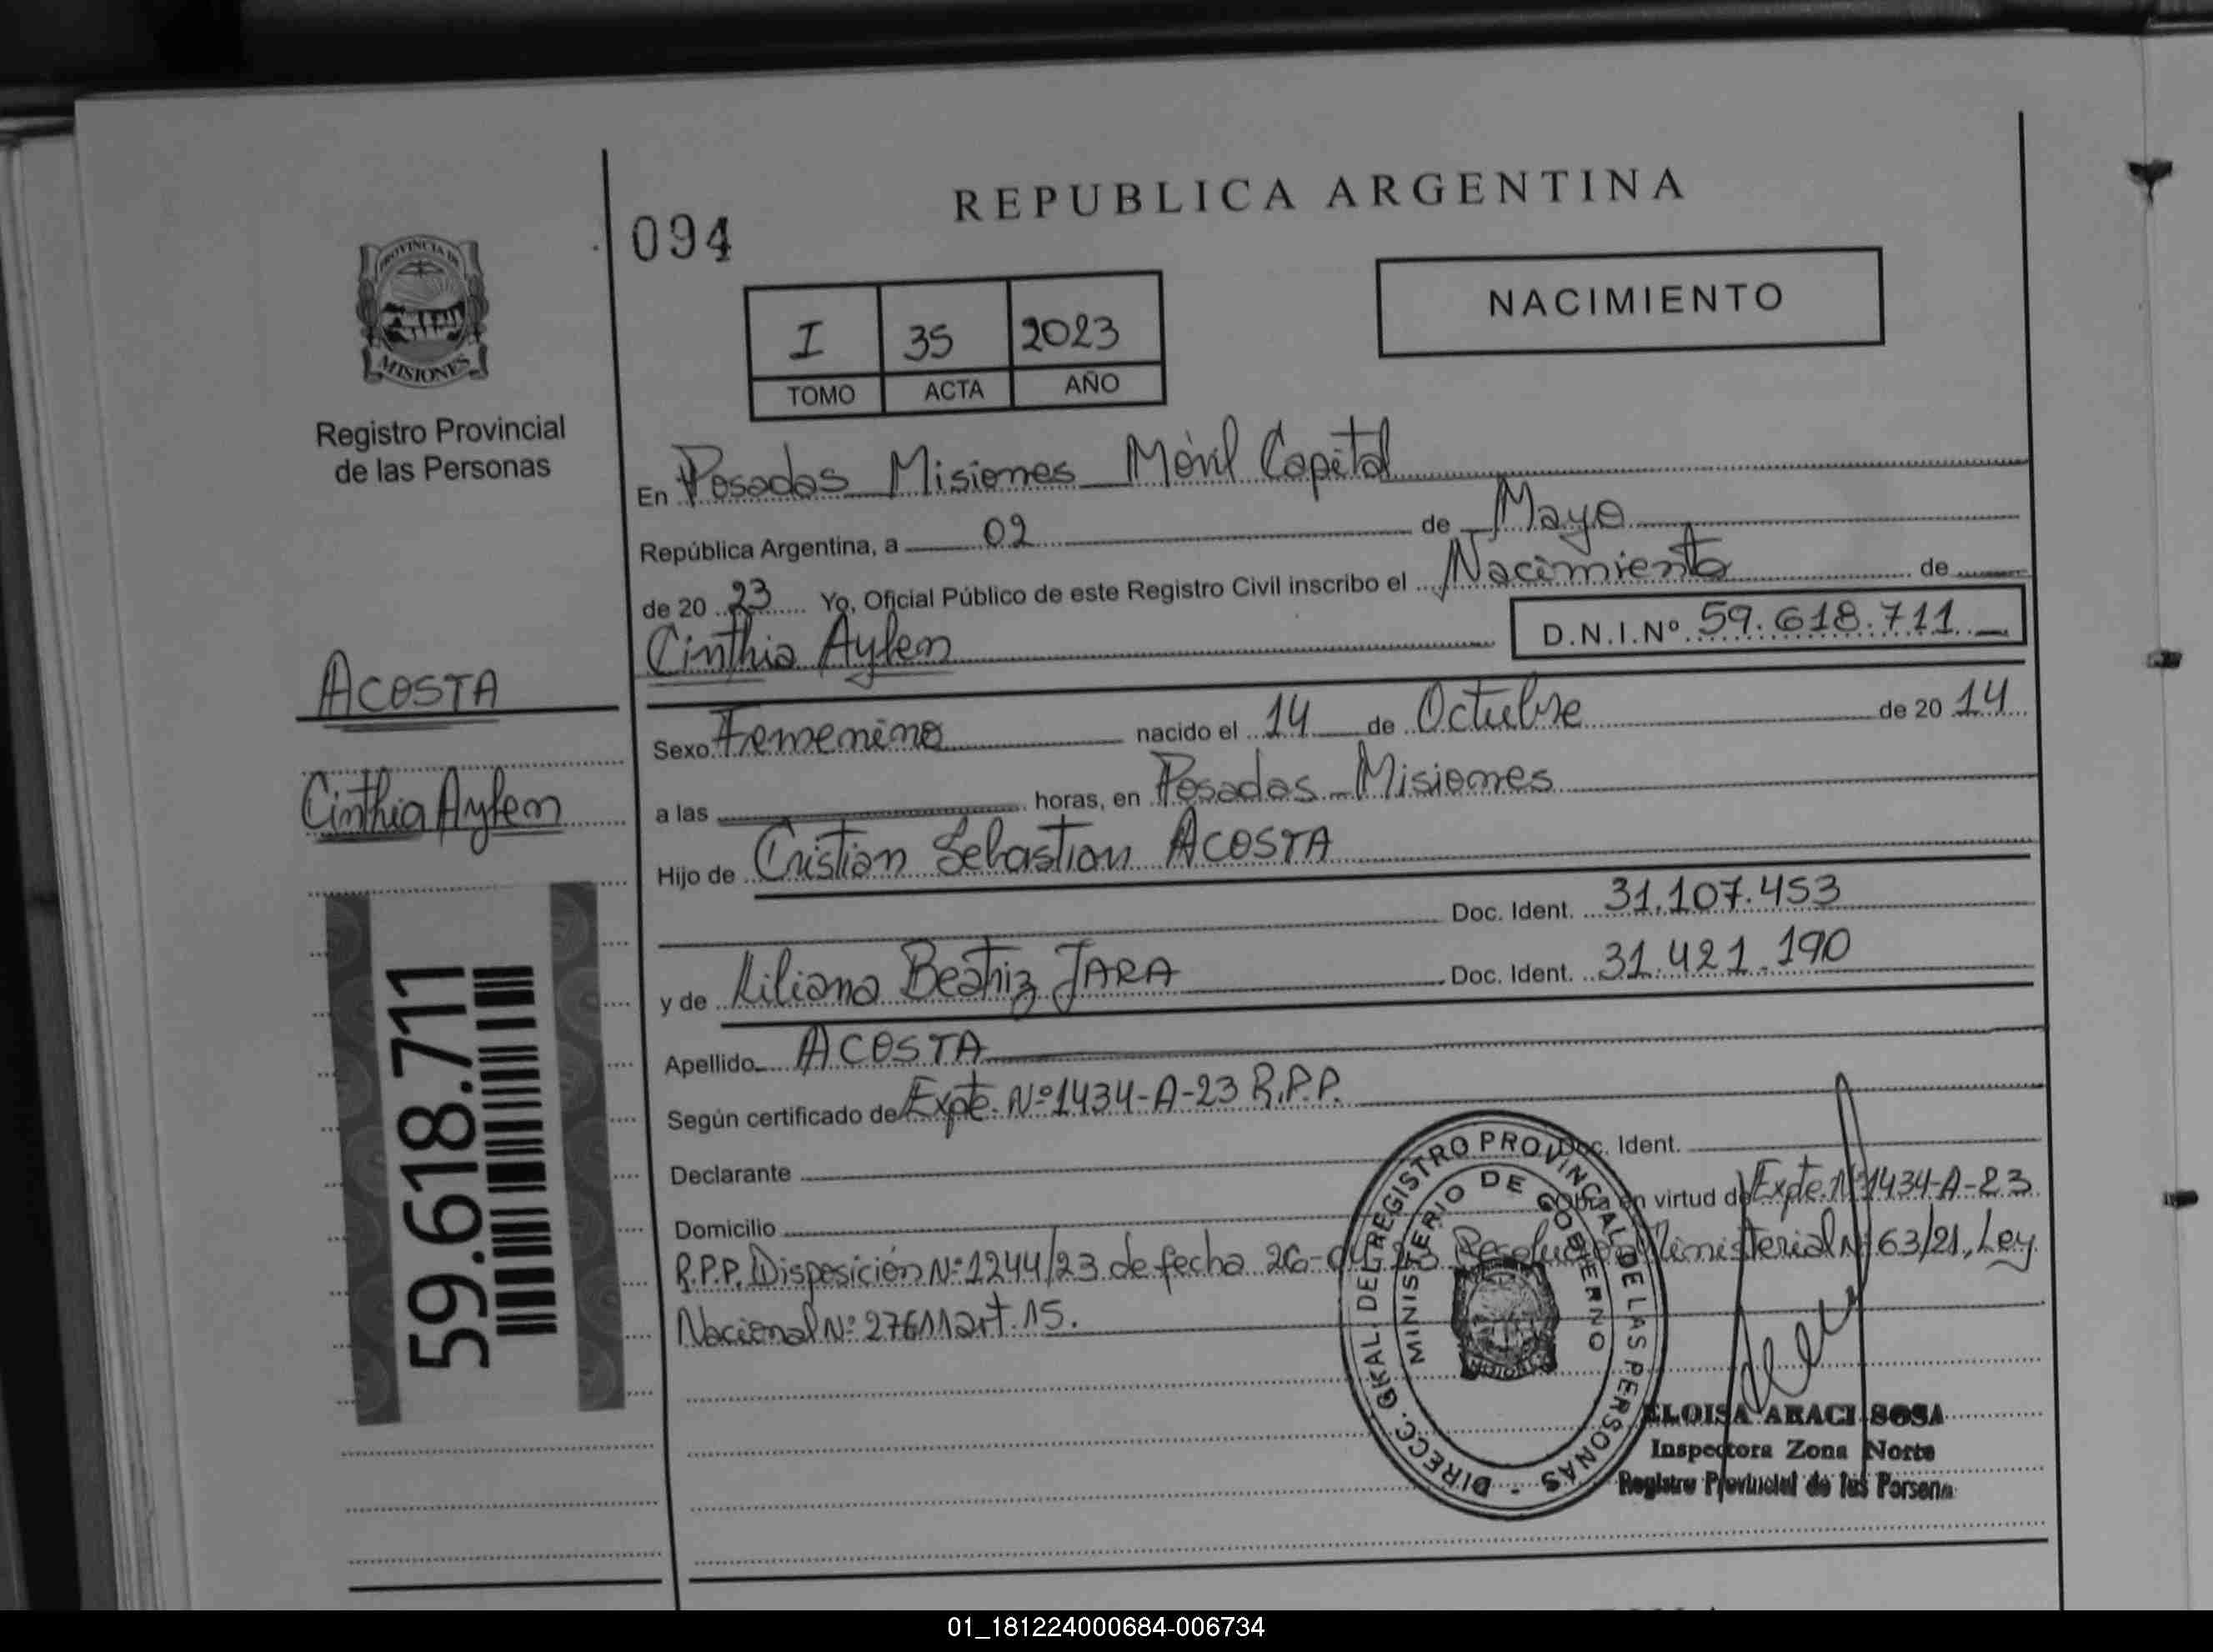 REPUBLICA ARGENTINA
094
NACIMIENTO
I 35 2023
TOMO ACTA AÑO
PROVINCIA DE
MISIONES
Registro Provincial
de las Personas
En Posadas Misiones Móvil Capital
República Argentina, a 02 de Mayo
de 20 23 Yo, Oficial Público de este Registro Civil inscribo el Nacimiento de
Cinthia Aylen D.N.I.Nº 59.618.711
ACOSTA
Cinthia Aylen
59.618.711
Sexo Femenino nacido el 14 de Octubre de 20 14
a las horas, en Posadas Misiones
Hijo de Cristian Sebastian ACOSTA
Doc. Ident. 31.107.453
y de Liliana Beatriz JARA Doc. Ident. 31.421.190
Apellido ACOSTA
Según certificado de Expte. Nº 1434-A-23 R.P.P.
Declarante Doc. Ident.
Domicilio Obra en virtud de Expte. Nº 1434-A-23
R.P.P. Disposición Nº 1244/23 de fecha 26-04-23 Resolución Ministerial Nº 63/21, Ley
Nacional Nº 27611 art. 15.
DIRECC. GRAL. DEL REGISTRO PROVINCIAL DE LAS PERSONAS -
MINISTERIO DE GOBIERNO
MISIONES
ELOISA ARACI SOSA
Inspectora Zona Norte
Registro Provincial de las Persona
01_181224000684-006734